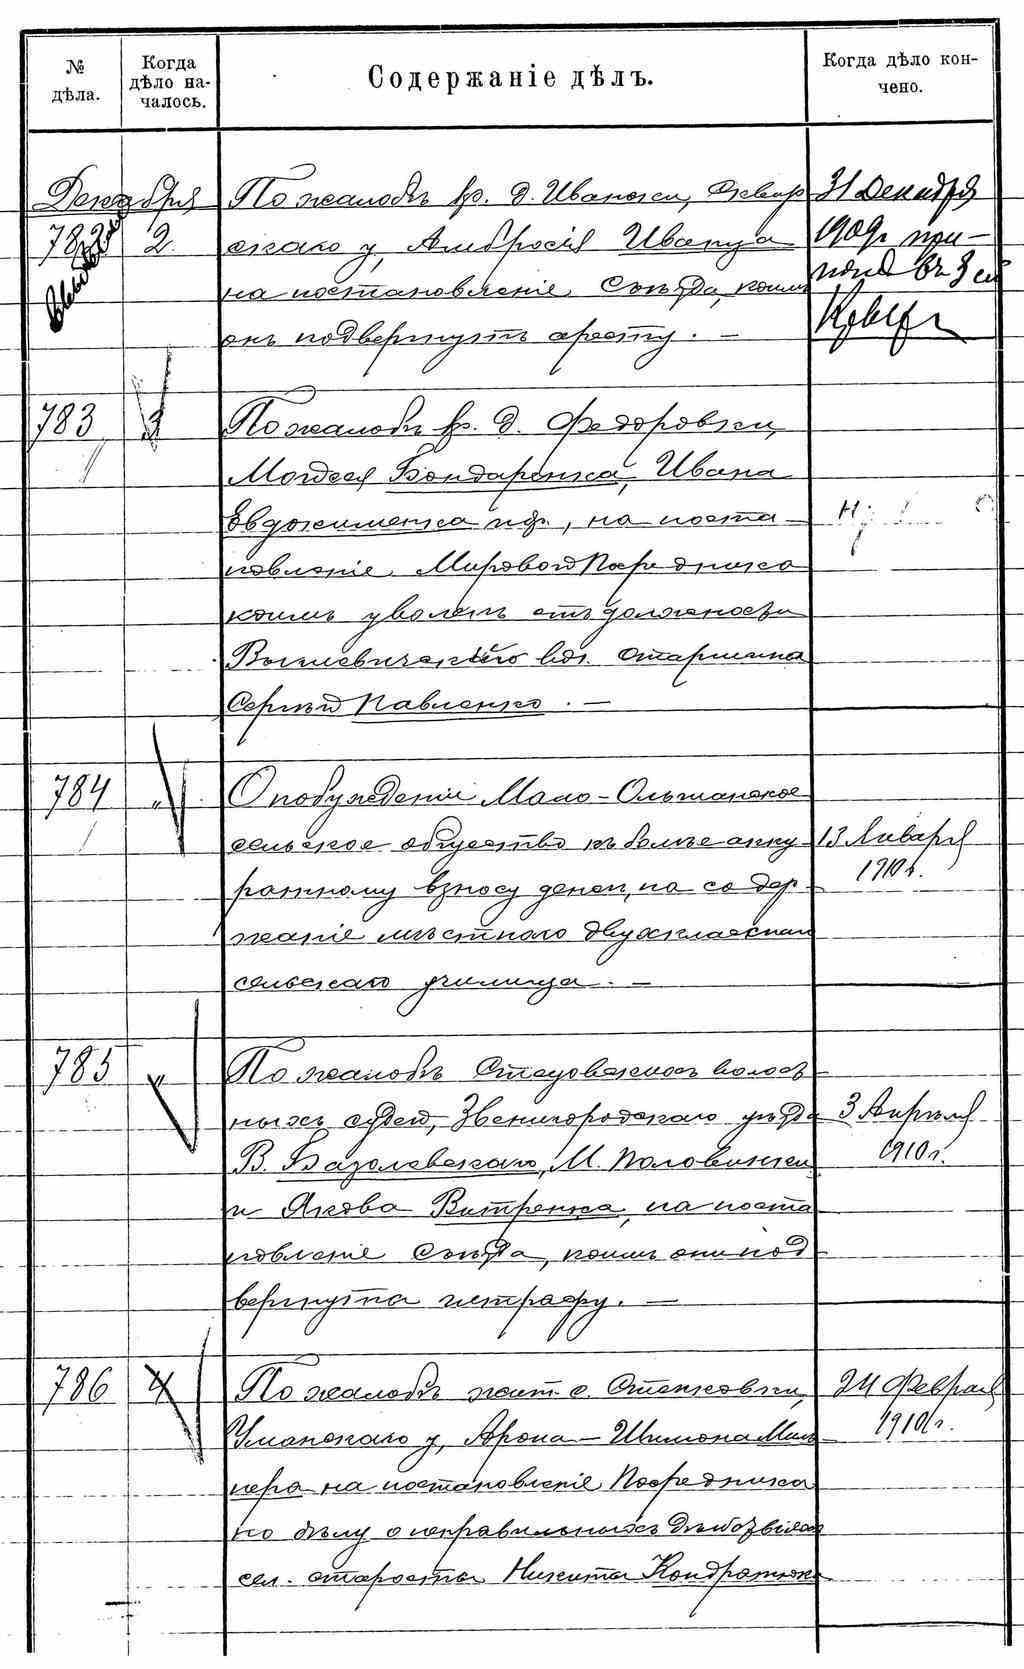 №
дѣла.
Когда
дѣло на-
чалось.
Содержаніе дѣлъ.
Когда дѣло кон-
чено.
Декабря
782
2.
По жалобѣ кр. д. Иваньки, Сквир
скаго у, Амбросія Иванца
на постановленіе Съѣзда, коимъ
онъ подвергнутъ аресту. —
31 Декабря
1909г
783
3
По жалобѣ кр. д. Федоровки,
Мойсея Бондаренка, Ивана
Евдокименка и др., на поста-
новленіе Мирового Посредника
коимъ уволенъ отъ должности
вол. старшина
Сергѣй Павленко. —
784
"
О побужденіи Мало-Ольшанское
сельское общество къ болѣе акку-
ратному взносу денег, на содер-
жаніе мѣстнаго двухкласснаго
сельскаго училища. —
13 Января
1910 г.
785
"
По жалобѣ Стецовскихъ волост-
ныхъ судей, Звенигородскаго уѣзда
В. Базолевскаго, М. Половинки
и Якова Витренка, на поста
новленіе Съѣзда, коимъ они под-
вергнуты штрафу. —
3 Апрѣля
1910 г.
786
4
По жалобѣ жит. с. Стеньковки,
Уманскаго у, Арона-Шимона Миль-
нера на постановленіе Посредника
по дѣлу о неправильныхъ дѣйствіяхъ
сел. старосты Никиты Кондратюка
24 Февраля
1910 г.